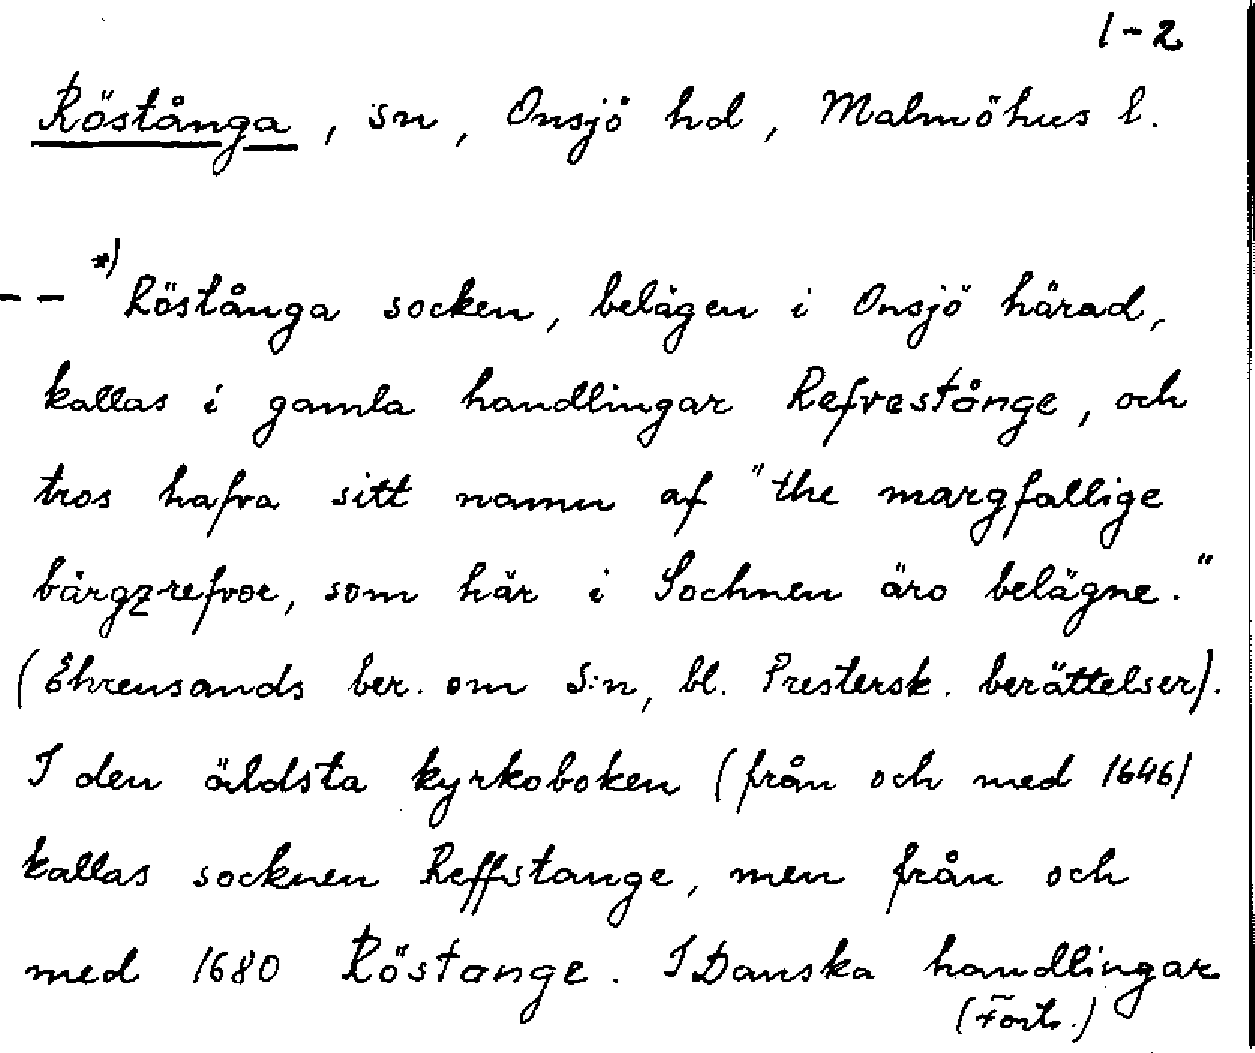 1-2
Röstånga, sn, Onsjö hd, Malmöhus l.
-- *) Röstånga socken, belägen i Onsjö härad,
kallas i gamla handlingar Refvestånge, och
tros hafva sitt namn af "the margfallige
bärgzrefvor, som här i Sochnen äro belägne."
(Ehrensands ber. om S:n, bl. Prestersk. berättelser).
I den äldsta kyrkoboken (från och med 1646)
kallas socknen Reffstange, men från och
med 1680 Röstange. I Danska handlingar
(Forts.)